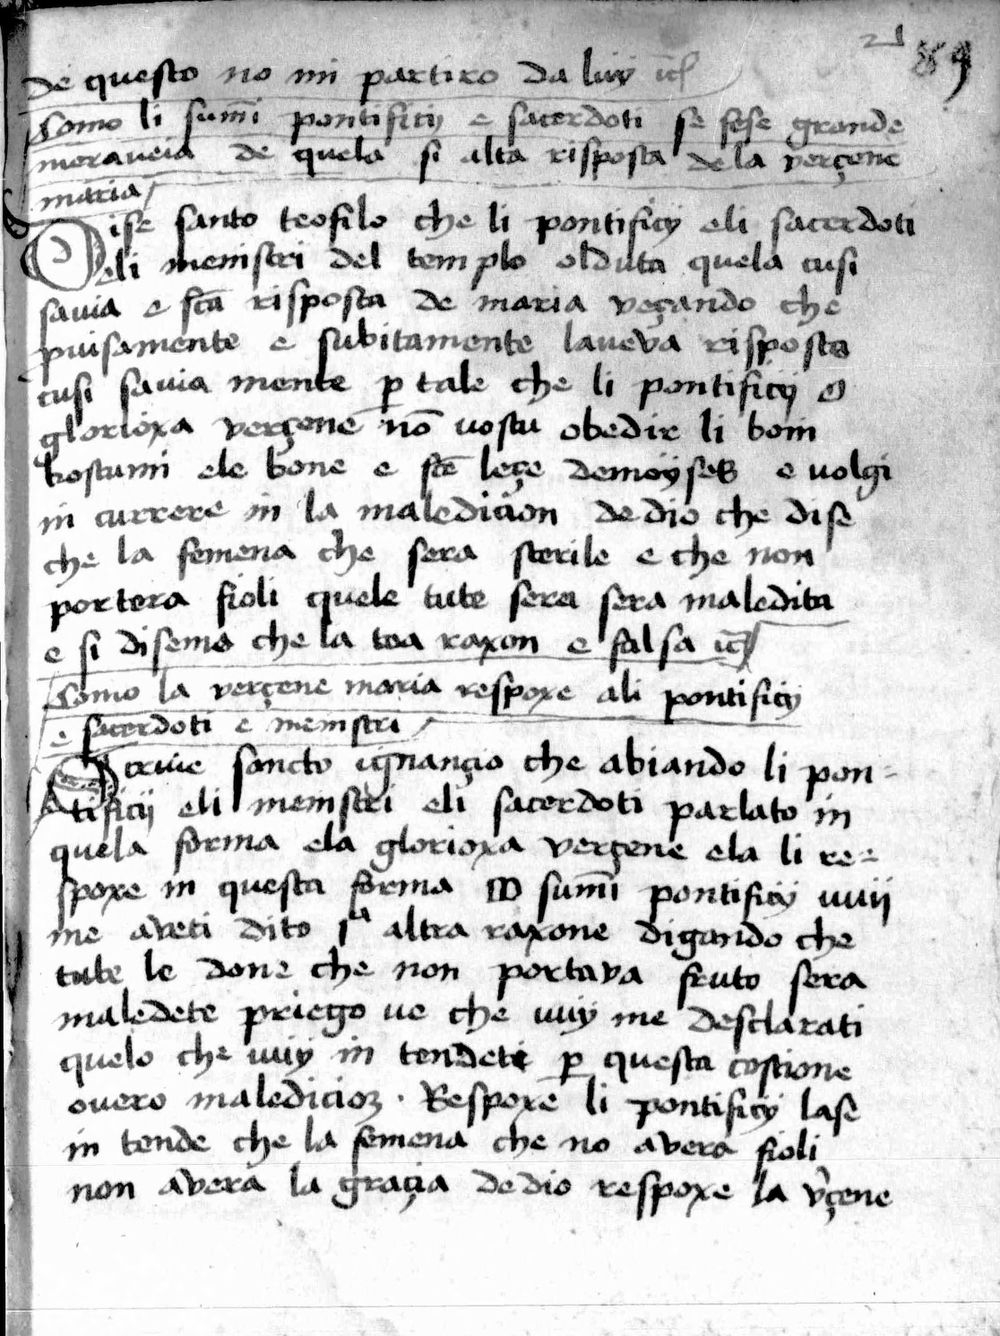 89
de questo no mi partiro da luy
Como li sum̄i pontificij e sacerdoti se fese grande
meraveia de quela si alta risposta de la verçene
maria
Dise santo teofilo che li pontificij eli sacerdoti
eli menistri del templo olduta quela cusi
savia e sc̄ta risposta de maria veçando che
pivisamente e subitamente laveva risposta
cusi savia mente p tale che li pontificij O
glorioxa verçene nō vostu obedir li boni
kostumi ele bone e sc̄te leçe demoyses e volgi
in currere in la maledicion de dio che dise
che la femena che sera sterile e che non
portera fioli quele tute sera sera maledita
e si disemo che la toa raxon e falsa
Como la verçene maria respoxe ali pontificij
e sacerdoti e menistri
Scrive sancto ignançio che abiando li pon-
tificij eli menistri eli sacerdoti parlato in
quela forma ela glorioxa verçene ela li re-
spoxe in questa forma O sum̄i pontificij vuij
me aveti dito 1ª altra raxone digando che
tute le done che non portava fruto sera
maledete priego ve che vuiy me desclarati
quelo che vuiy in tendeti p questa costione
overo maledicioȝ. Respoxe li pontificij lase
in tende che la femena che no avera fioli
non avera la gracia de dio respoxe la vçene